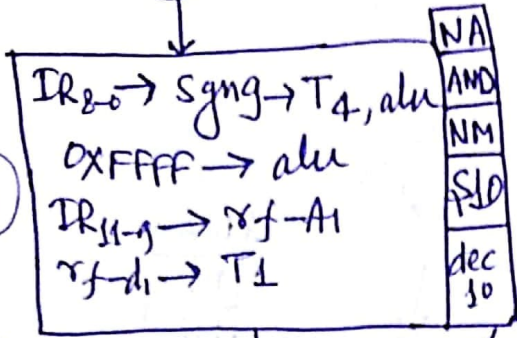 IR8-0 → Sgn9 → T4, alu
0XFFFF → alu
IR11-9 → rf-A1
rf-d1 → T1
NA
AND
NM
S10
dec
10